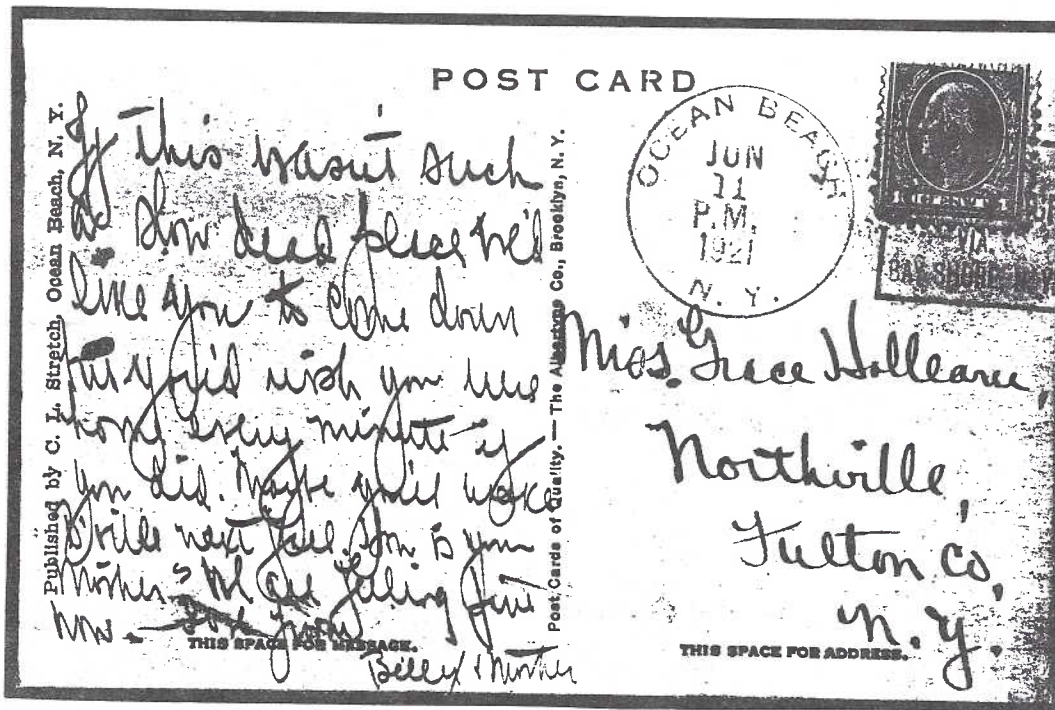 POST CARD
Published by C. L. Stretch, Ocean Beach, N. Y.
If this wasn't such
a slow dead place we'd
like you to come down
but you'd wish you were
home every minute if
you did. Maybe you'll make
G'ville next fall. How is your
Mother? We are feeling fine
now. Love from
Billy & Mother
THIS SPACE FOR MESSAGE.
Post Cards of Quality. — The Albertype Co., Brooklyn, N. Y.
OCEAN BEACH
JUN
11
P.M.
1921
N. Y.
VIA
BAY SHORE
Miss. Grace
Northville,
Fulton Co,
N.Y.
THIS SPACE FOR ADDRESS.